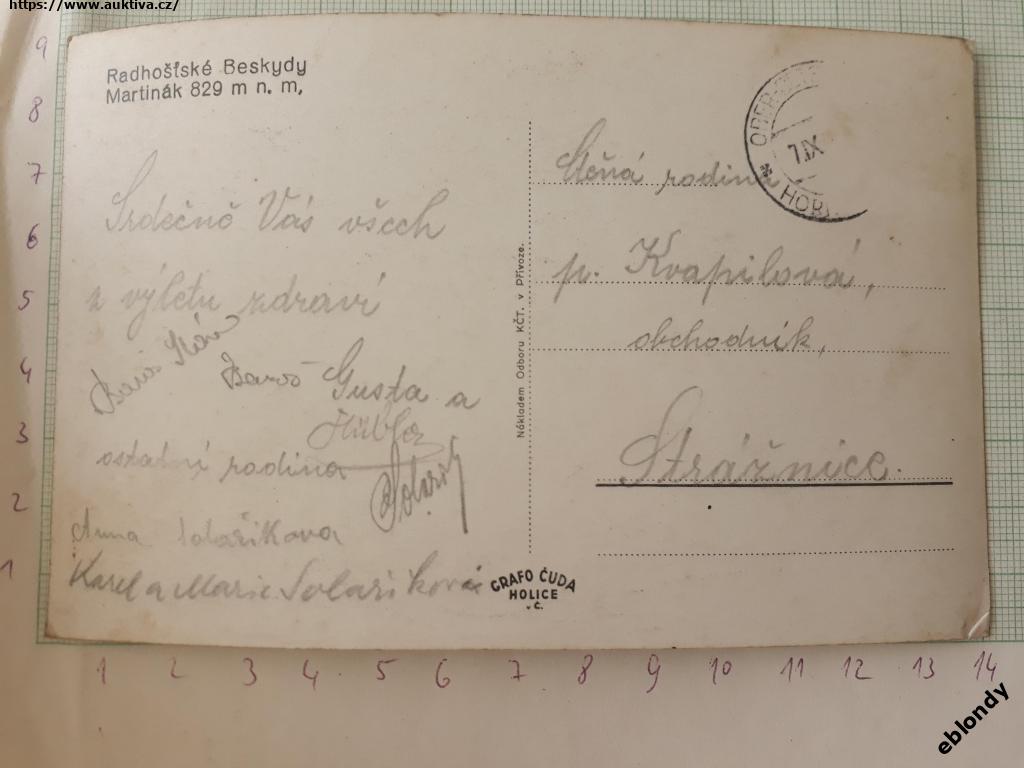 https://www.auktiva.cz/
Radhošťské Beskydy
Martinák 829 m n. m,
Srdečně Vás všech
z výletu zdraví
Gusta a
ostatní rodina
Anna Solaříkova
Karel a Marie Solaříková
Nákladem Odboru KČT. v Přívoze.
GRAFO ČUDA
HOLICE
v Č.
7.IX
Ctěná rodina
p. Kvapilová,
obchodník,
Strážnice.
9
8
7
6
5
4
3
2
1
1 2 3 4 5 6 7 8 9 10 11 12 13 14
eblondy